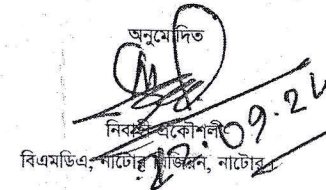 অনুমোদিত
নির্বাহী প্রকৌশলী
বিএমডিএ, নাটোর রিজিয়ন, নাটোর।